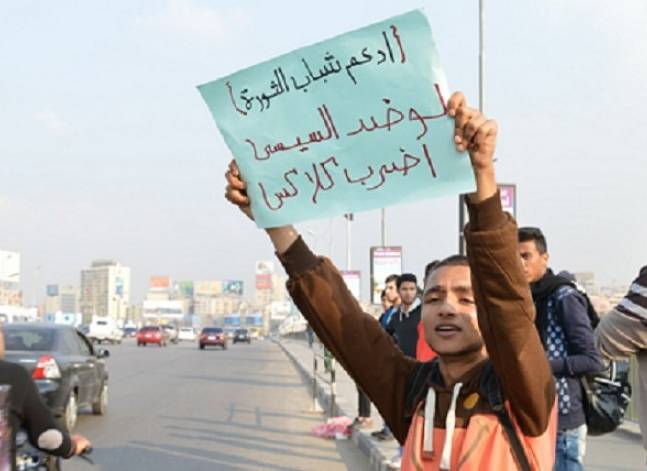 (ادعم شباب الثورة)
لو ضد السيسى
اضرب كلاكس